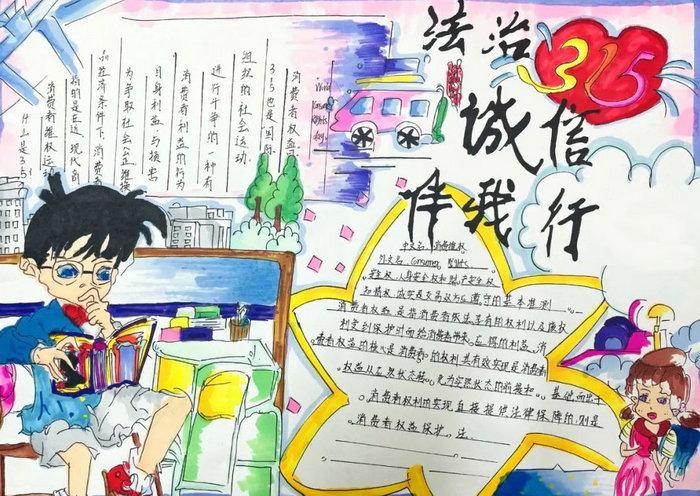 法治315
诚信
伴我行
什么是315?
消费者维权运动
指的是在近、现代商
品经济条件下,消费者
为争取社会公正、维护
自身利益、与损害
消费者利益的行为
进行斗争的一种有
组织的社会运动.
315也是"国际
消费者权益
World
Rights
day.
中文名:消费维权
外文名: Consumer Rights
安全权:人身安全权和财产安全权
知情权:诚实是交易双方应遵守的基本准则
消费者权益,是指消费者依法享有的权利以及该权
利受到保护时而给消费者带来应得的利益。消
费者权益的核心是消费者的权利其有效实现是消费者
权益从应然状态转化为实然状态的前提和基础。而对于
消费者权利的实现直接提供法律保障的,则是
消费者权益保护法.